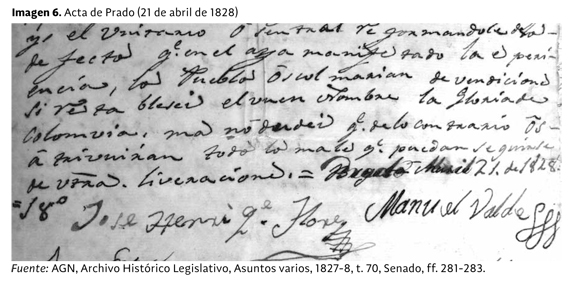 Imagen 6. Acta de Prado (21 de abril de 1828)
ys el Unitario o sentral re gormandole
de fecto q.e en el aya manifestado la espiri
encia, los Pueblos colmarian de vendicione
si restablesei el vuen nombre la Gloria de
Colomvia, ma no dudei q.e de lo contrario os
a trivuirian todo lo malo q.e puedan seguirse
de vtra. livenacione. = Bogota Abril 21. de 1828.
=18º
Jose Henri q.e Flores Manuel Valdes
Fuente: AGN, Archivo Histórico Legislativo, Asuntos varios, 1827-8, t. 70, Senado, ff. 281-283.